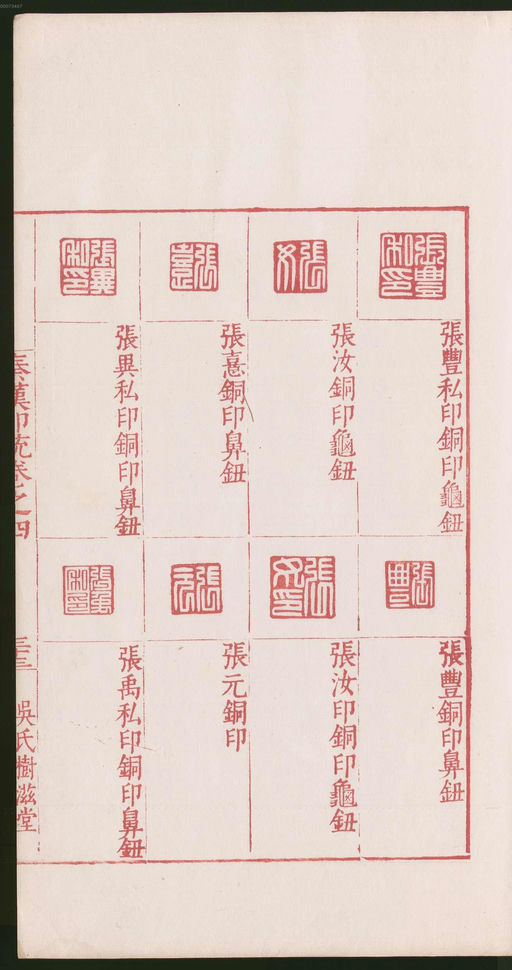 張豐私印銅印龜鈕
張豐銅印鼻鈕
張汝銅印龜鈕
張汝印銅印龜鈕
張憙銅印鼻鈕
張元銅印
張異私印銅印鼻鈕
張禹私印銅印鼻鈕
秦漢印統卷之四
三三
吳氏樹滋堂